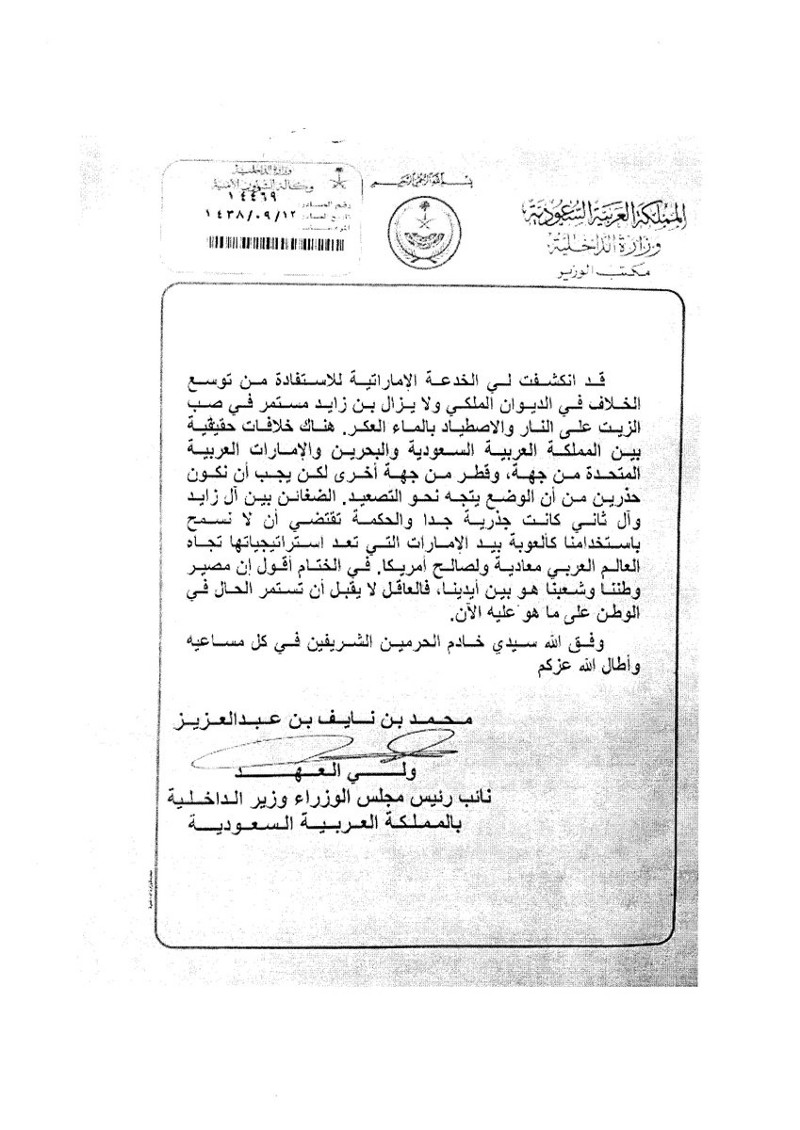 وزارة الداخلية
وكالة الشؤون الأمنية
١٤٤٦٩
رقم الصادر:
تاريخ الصادر: ١٤٣٨/٠٩/١٢
بسم الله الرحمن الرحيم
المملكة العربية السعودية
وزارة الداخلية
مكتب الوزير
قد انكشفت لي الخدعة الإماراتية للاستفادة من توسع
الخلاف في الديوان الملكي ولا يزال بن زايد مستمر في صب
الزيت على النار والاصطياد بالماء العكر. هناك خلافات حقيقية
بين المملكة العربية السعودية والبحرين والإمارات العربية
المتحدة من جهة، وقطر من جهة أخرى لكن يجب أن نكون
حذرين من أن الوضع يتجه نحو التصعيد. الضغائن بين آل زايد
وآل ثاني كانت جذرية جدا والحكمة تقتضي أن لا نسمح
باستخدامنا كألعوبة بيد الإمارات التي تعد استراتيجياتها تجاه
العالم العربي معادية ولصالح أمريكا. في الختام أقول إن مصير
وطننا وشعبنا هو بين أيدينا، فالعاقل لا يقبل أن تستمر الحال في
الوطن على ما هو عليه الآن.
وفق الله سيدي خادم الحرمين الشريفين في كل مساعيه
وأطال الله عزكم
محمد بن نايف بن عبدالعزيز
ولي العهد
نائب رئيس مجلس الوزراء وزير الداخلية
بالمملكة العربية السعودية